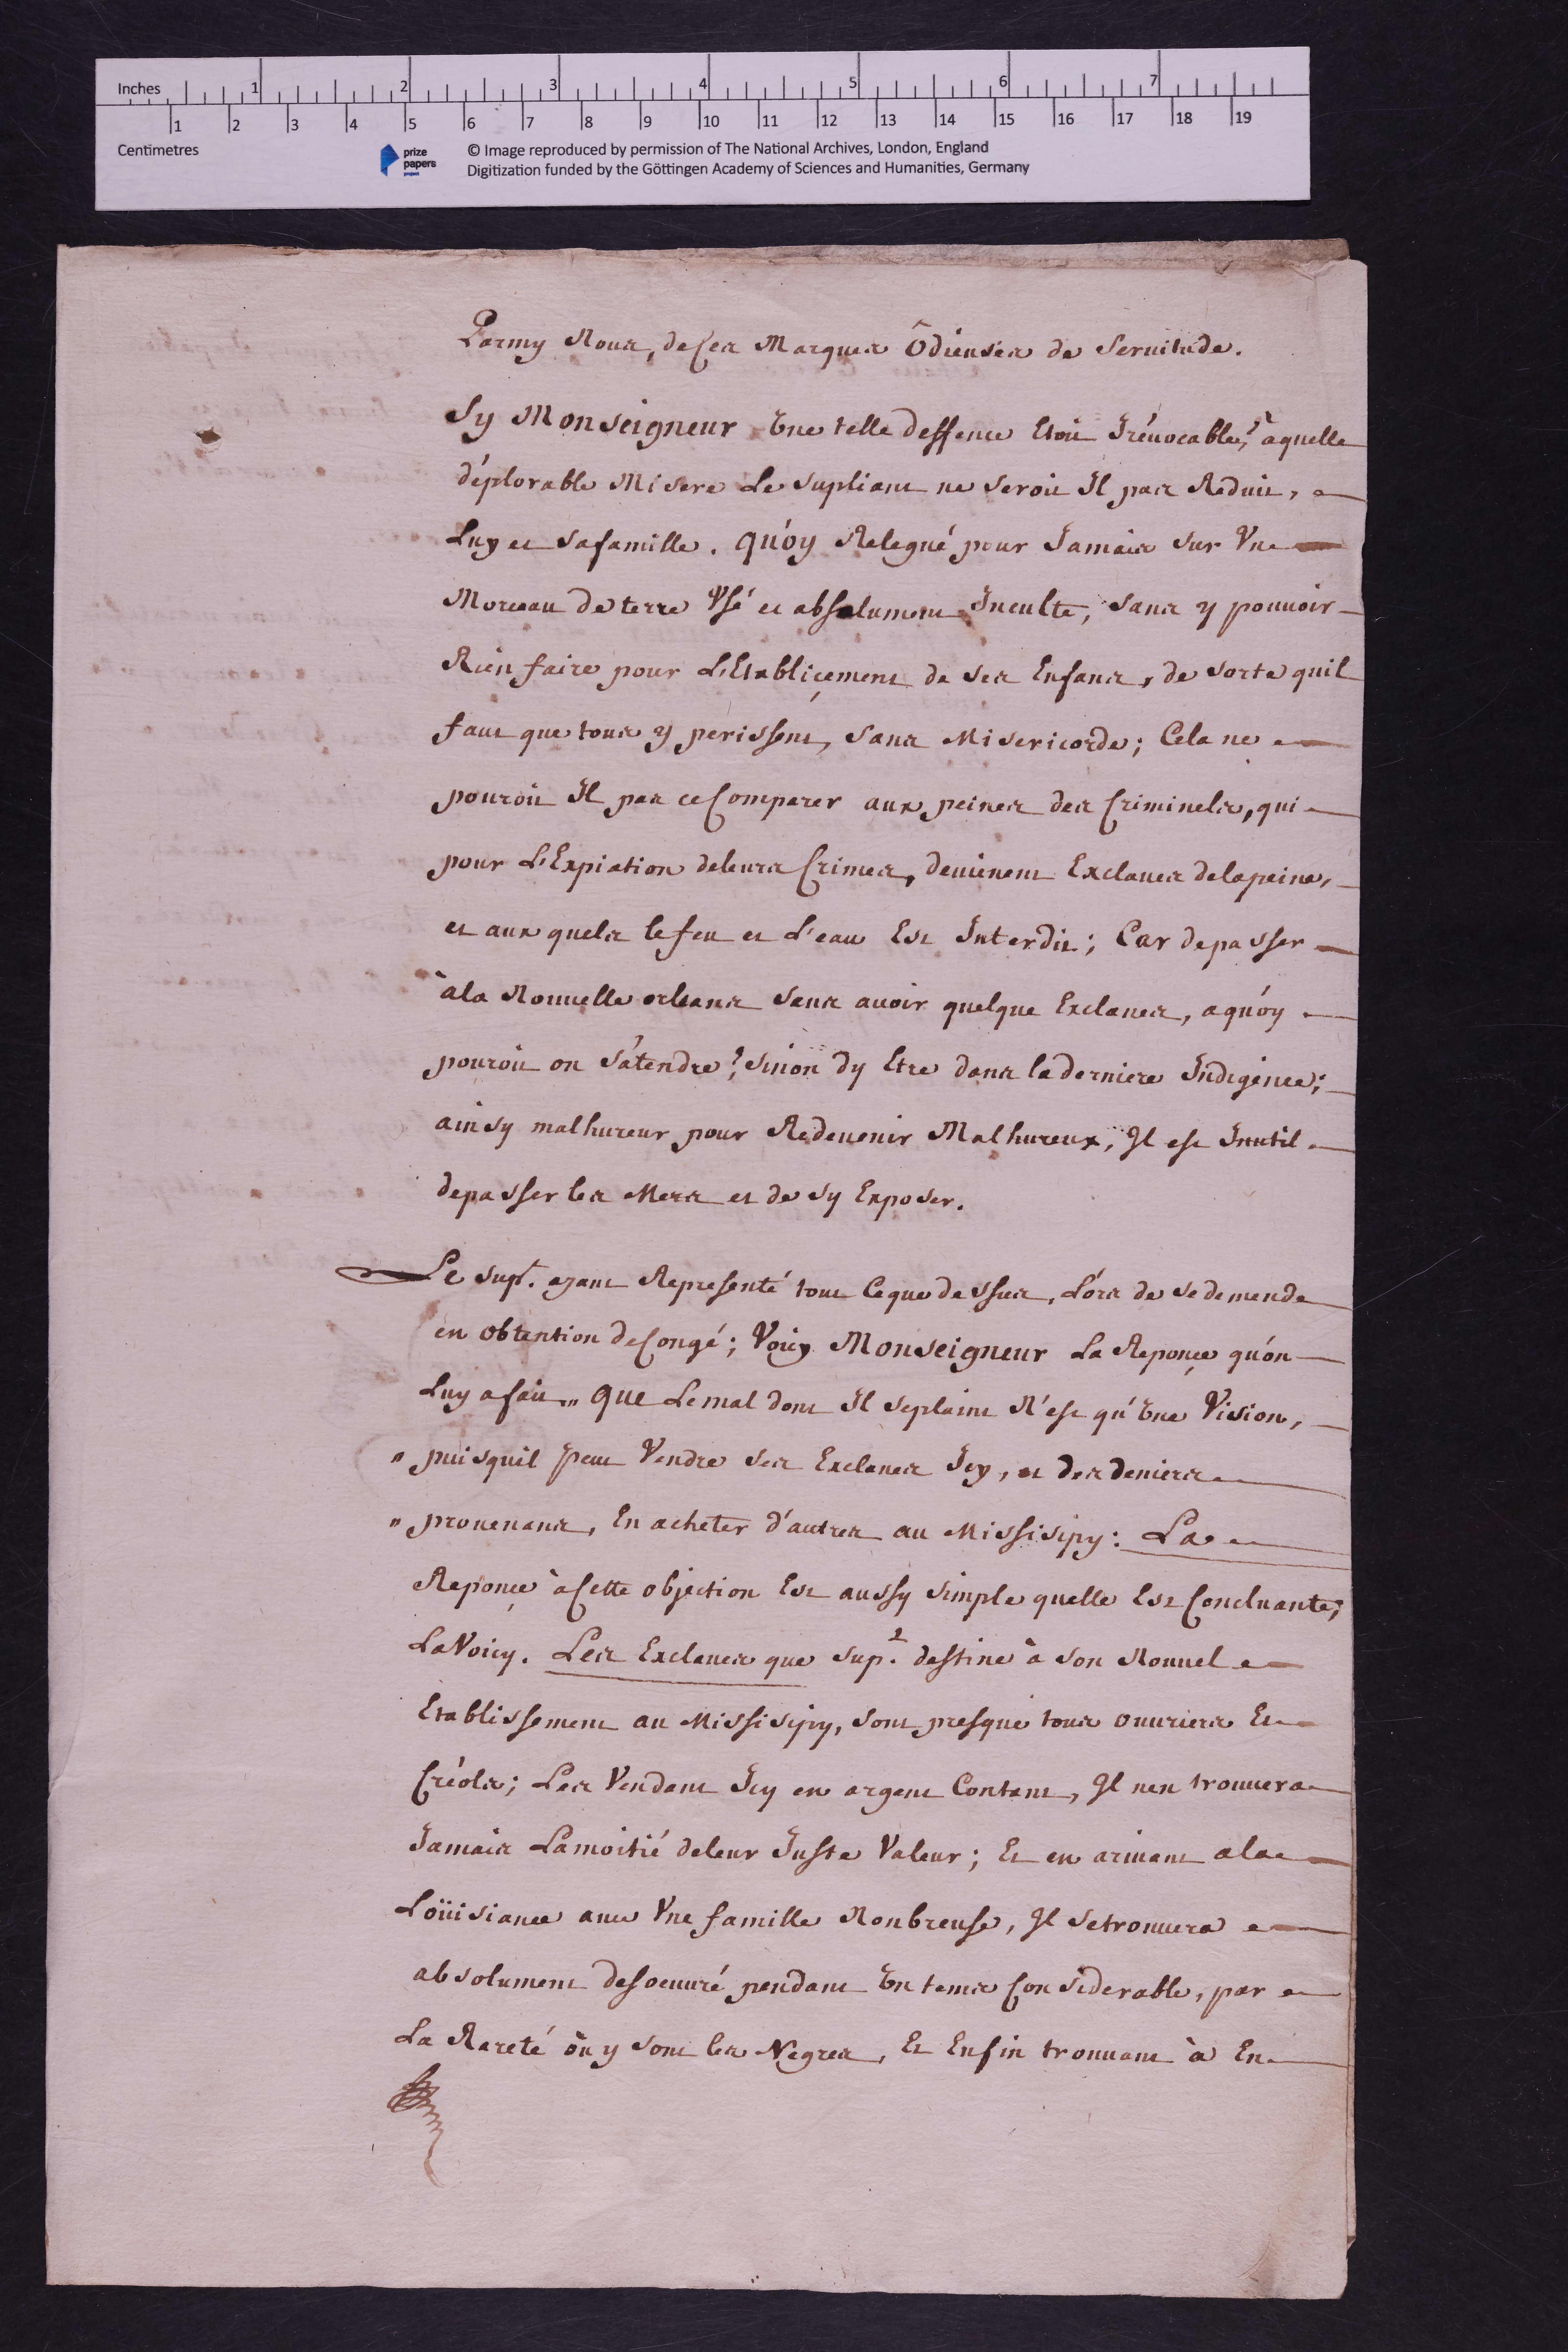 Inches 1 2 3 4 5 6 7
1 2 3 4 5 6 7 8 9 10 11 12 13 14 15 16 17 18 19
Centimetres
prize papers
© Image reproduced by permission of The National Archives, London, England
Digitization funded by the Göttingen Academy of Sciences and Humanities, Germany
Parmy Nous, de ces Marques Ôdieuses de Servitude.
Sy Monseigneur Une telle deffence Etoit Irévocable, ? à quelle
déplorable Misere Le supliant ne seroit Il pas Reduit,
Luy et sa famille. quóy Relegué pour Jamais sur Vne
Morceau de terre Vsé et absolument Inculte, sans y pouvoir
Rien faire pour L'Etabliçement de ses Enfans, de sorte quil
faut que tous y perissent, sans Misericorde; Cela ne
pouroit Il pas ce Comparer aux peines des Criminels, qui
pour L'Expiation de leurs Crimes, devienent Exclaves de la peine,
et aux quels le feu et L'eau Est Interdit; Car de passer
à la Nouvelle orleans sans avoir quelque Exclaves, a quóy
pouroit on s'atendre ? sinon dy Etre dans la derniere Indigence;
ainsy malhureux pour Redevenir Malhureux, Il est Inutil
de passer les Mers et de sy Exposer.
Le supt. ayant Representé tout Ce que dessus, Lórs de se demende
en obtention de Congé; Voicy Monseigneur La Reponçe qu'on
Luy a fait „ que Le mal dont Il se plaint N'est qu'Une Vision,
„ puisquil peut Vendre ses Exclaves Icy, et des deniers
„ provenans, En acheter d'autres au Missisipy: La
Reponçe à Cette objection Est aussy simple quelle Est Concluante;
La Voicy. Les Exclaves que supt. destine à son Nouvel
Etablissement au Missisipy, sont presque tous ouvriers Et
Créols; Les Vendant Icy en argent Contant, Il nen trouvera
Jamais La moitié de leur Juste Valeur; Et en arivant a la
Loüisianee avec Vne famille Nonbreuse, Il se trouvera
absolument desoeuvré pendant Un tems Considerable, par
La Rareté ôu y sont les Negres, Et Enfin trouvant à En